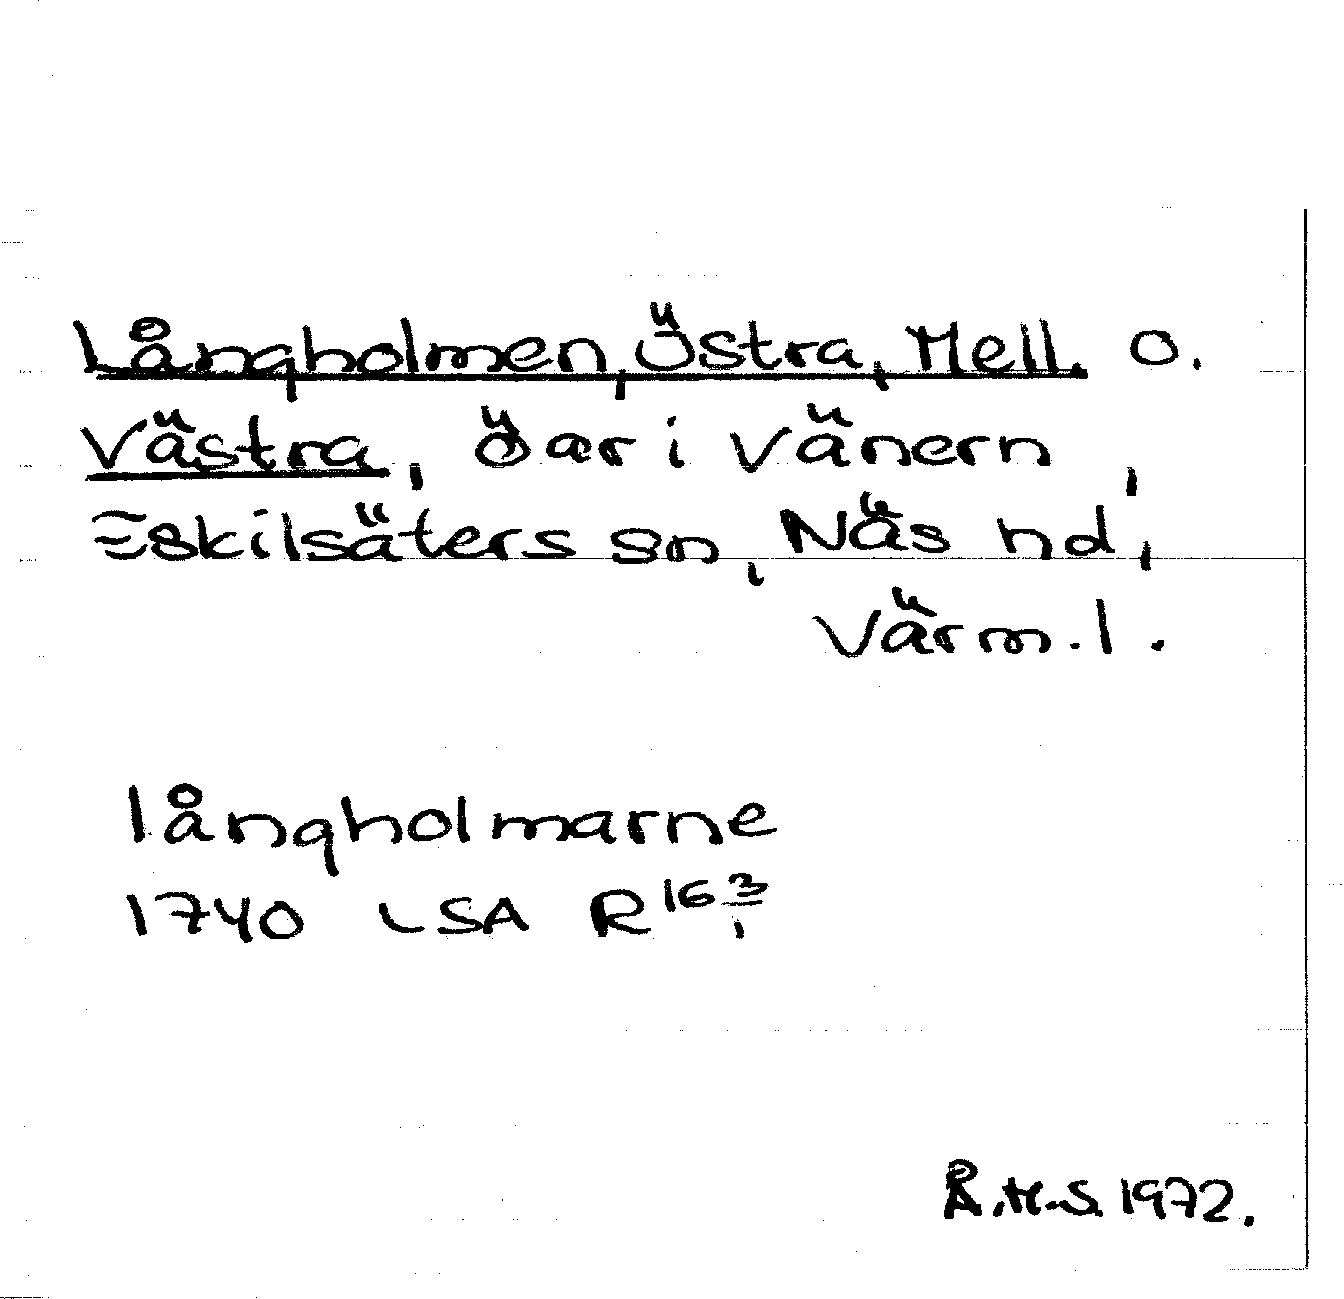 Långholmen, Östra, Mell. o.
Västra, öar i Vänern,
Eskilsäters sn, Näs hd,
Värm.l.
långholmarne
1740 LSA R 16 3/1
Å.H.S. 1972.